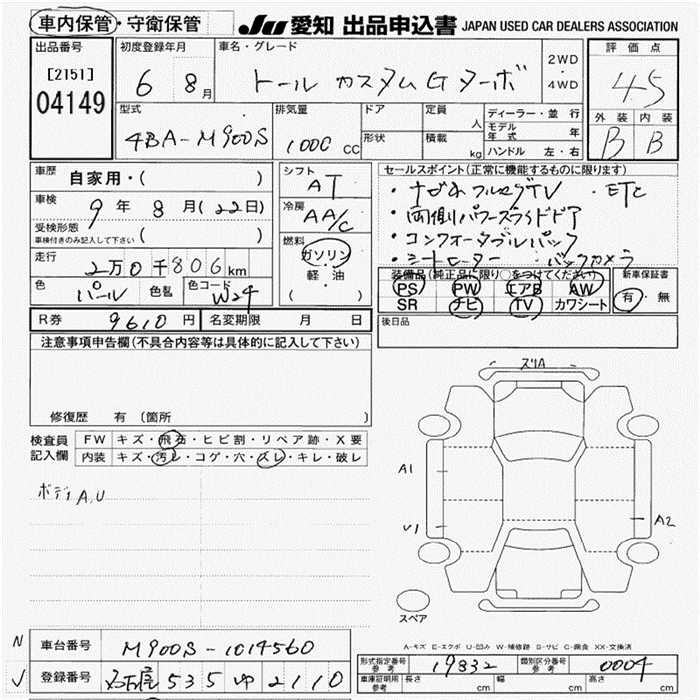 車内保管・守衛保管 JU 愛知 出品申込書 JAPAN USED CAR DEALERS ASSOCIATION
出品番号 [2151] 04149
初度登録年月 6 8月
車名・グレード トール カスタムGターボ 2WD・4WD
評価点 4.5
外装 内装
B B
型式 4BA-M900S
排気量 1000 CC
ドア 形状
定員 人 積載 kg
ディーラー・並行
モデル年式 年
ハンドル 左・右
車歴 自家用・( )
車検 9年8月(22日)
受検形態 車検付きのみ記入して下さい ( )
走行 2万0千806km
色 パール 色替 色コード W24
シフト AT
冷房 AA/C
燃料 ガソリン 軽・油 ( )
セールスポイント(正常に機能するものに限ります)
・ナビフルセグTV ・ETC
・両側パワースライドドア
・コンフォータブルパック
・シートヒーター ・バックカメラ
装備品(純正品に限り○をつけてください)
PS PW エアB AW
SR ナビ TV カワシート
新車保証書
有・無
R券 9610円 名変期限 月 日
後日品
注意事項申告欄(不具合内容等は具体的に記入して下さい)
修復歴 有(箇所
検査員記入欄
FW キズ・飛石・ヒビ割・リペア跡・X要
内装 キズ・汚レ・コゲ・穴・スレ・キレ・破レ
3
ボディA,U
スリA
A1
V1
A2
スペア
A-キズ E-エクボ U-凹み W-補修跡 S-サビ C-腐食 XX-交換済
N 車台番号 M900S-1014560
V 登録番号 名古屋 535 ゆ 2110
形式指定番号 参考 19832 類別区分番号 参考 0004
車庫証明用 参考 長さ cm 幅 cm 高さ cm